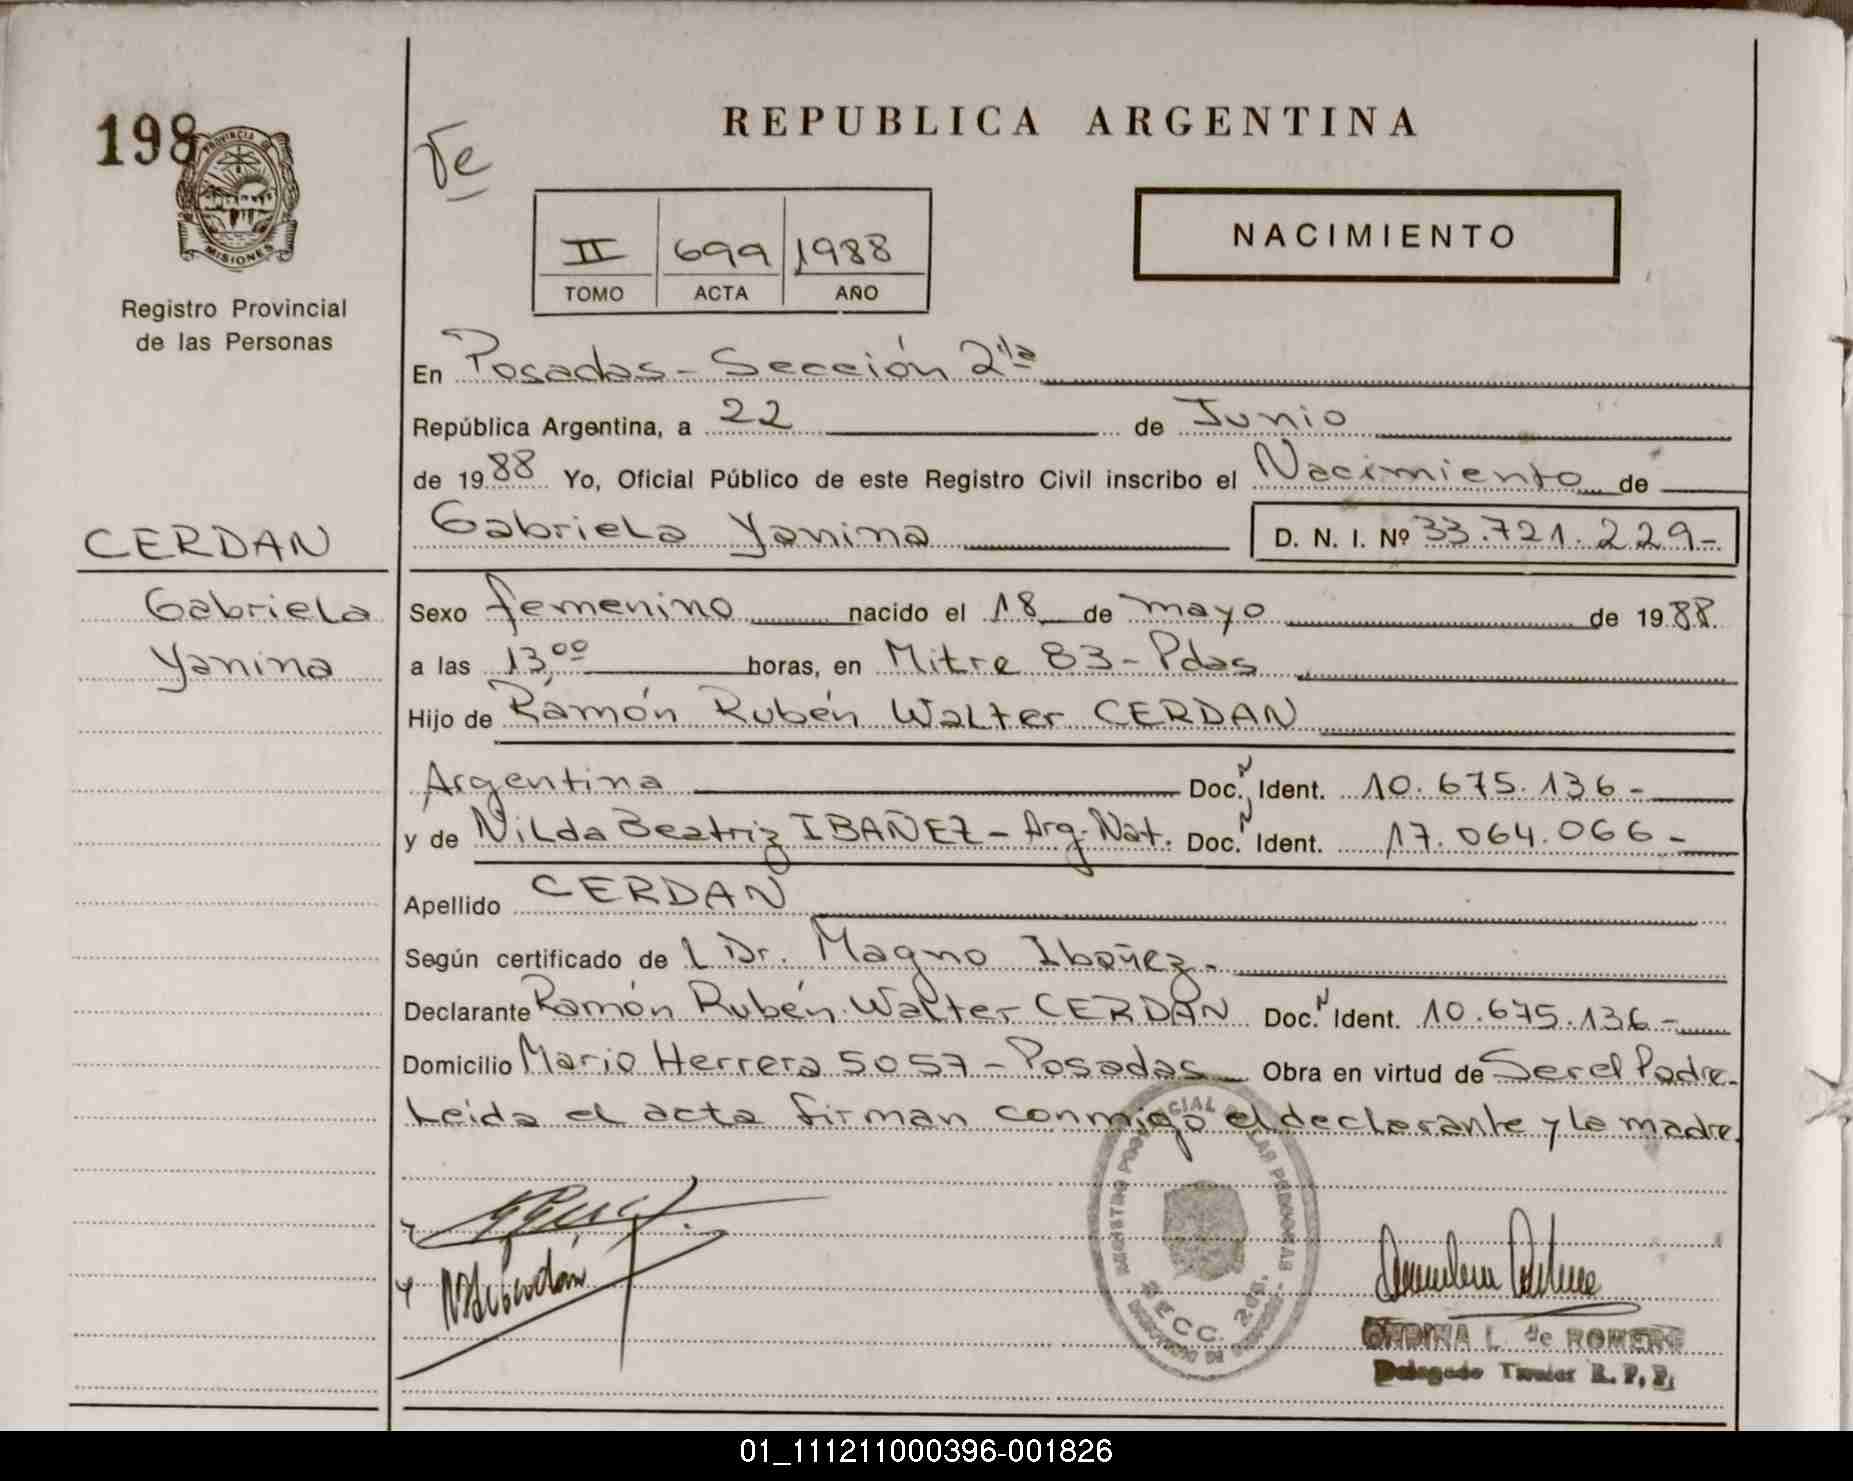 198
PROVINCIA
MISIONES
Registro Provincial
de las Personas
CERDAN
Gabriela
Yanina
REPUBLICA ARGENTINA
II 699 1988
TOMO ACTA AÑO
NACIMIENTO
En Posadas - Sección 2da
República Argentina, a 22 de Junio
de 1988 Yo, Oficial Público de este Registro Civil inscribo el Nacimiento de
Gabriela Yanina D. N. I. Nº 33.721.229-
Sexo femenino nacido el 18 de mayo de 1988.
a las 13,00 horas, en Mitre 83 - Pdas
Hijo de Ramón Rubén Walter CERDAN
Argentina Doc. N Ident. 10.675.136-
y de Nilda Beatriz IBAÑEZ - Arg. Nat. Doc. N Ident. 17.064.066-
Apellido CERDAN
Según certificado de l Dr. Magno Ibañez.
Declarante Ramón Rubén Walter CERDAN Doc. N Ident. 10.675.136-
Domicilio Mario Herrera 5057 - Posadas Obra en virtud de Ser el Padre.
Leida el acta firman conmigo el declarante y la madre.
SECC. 2da.
ONDINA L. de ROMERO
Delegado Titular R. P. P.
01_111211000396-001826